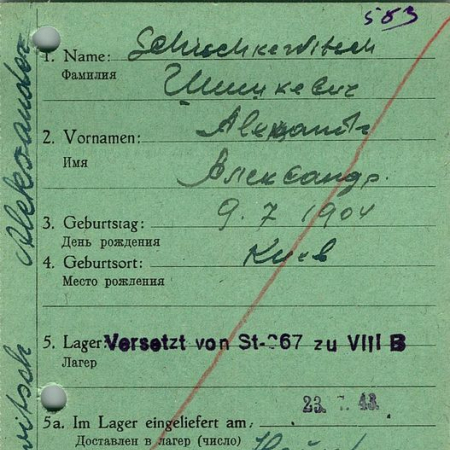 583
1. Name: Schischkewitsch
Фамилия Шишкевич
2. Vornamen: Alexandr
Имя Александр.
3. Geburtstag: 9.7 1904
День рождения
4. Geburtsort: Киев
Место рождения
5. Lager: Versetzt von St-367 zu VIII B
Лагерь
23. 43.
5a. Im Lager eingeliefert am
Доставлен в лагерь (число)
Aleksander
witsch